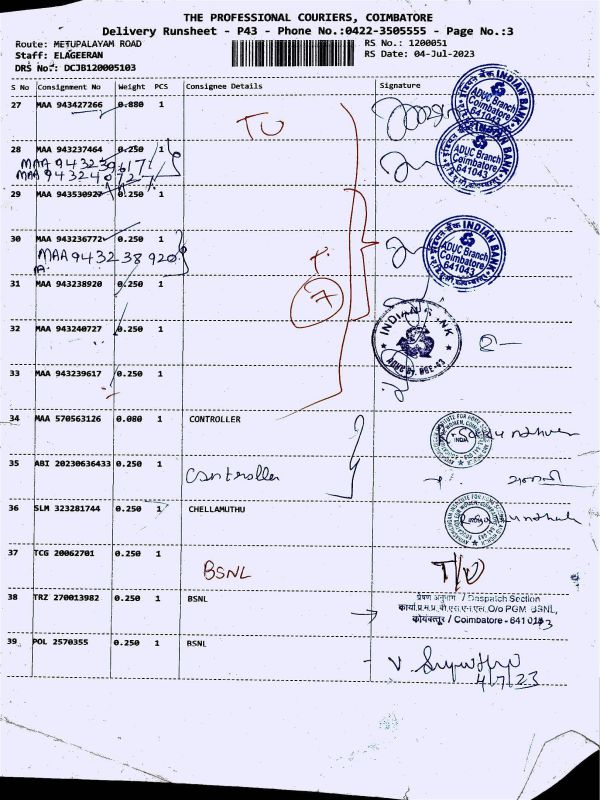 THE PROFESSIONAL COURIERS, COIMBATORE
Delivery Runsheet - P43 - Phone No.:0422-3505555 - Page No.:3
Route: METUPALAYAM ROAD
RS No.: 1200051
Staff: ELAGEERAN
RS Date: 04-Jul-2023
DRS No.: DCJB120005103
S No Consignment No Weight PCS Consignee Details Signature
27 MAA 943427266 0.880 1
INDIAN BANK
ADUC Branch
Coimbatore
641043
28 MAA 943237464 0.250 1
MAA 943239617
MAA 943240727
INDIAN BANK
ADUC Branch
Coimbatore
641043
29 MAA 943530927 0.250 1
30 MAA 943236772 0.250 1
MAA 943238920
INDIAN BANK
ADUC Branch
Coimbatore
641043
31 MAA 943238920 0.250 1
7
32 MAA 943240727 0.250 1
33 MAA 943239617 0.250 1
34 MAA 570563126 0.080 1 CONTROLLER
35 ABI 20230636433 0.250 1
Controller
36 SLM 323281744 0.250 1 CHELLAMUTHU
37 TCG 20062701 0.250 1
BSNL
38 TRZ 270013982 0.250 1 BSNL
प्रेषण अनुभाग / Despatch Section
O/o PGM BSNL,
कोयंबत्तूर / Coimbatore - 641 043
39 POL 2570355 0.250 1 BSNL
4/7/23